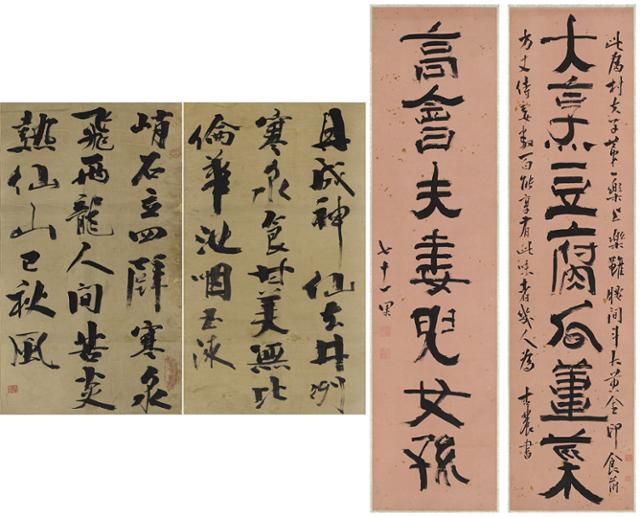 此爲村夫子第一樂上樂雖腰間斗大黃金印食前
大烹豆腐瓜薑菜
方丈侍妾數百能享有此味者幾人爲 古農書
高會夫妻兒女孫
七十一果
且成神仙去井洌
寒泉食甘美無比
倫華池咽玉液
峭石立四壁寒泉
飛兩龍人間苦炎
熱仙山已秋風